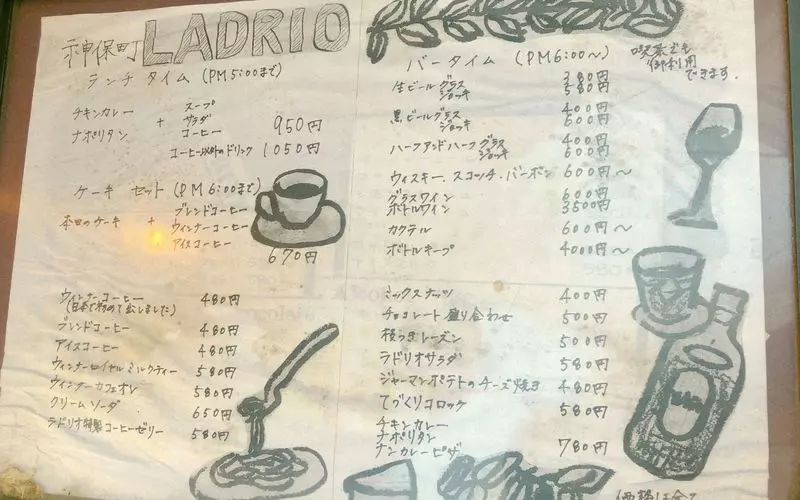 神保町 LADRIO
ランチタイム (PM5:00まで)
チキンカレー
ナポリタン
+
スープ
サラダ
コーヒー 950円
コーヒー以外のドリンク 1050円
ケーキセット (PM6:00まで)
本日のケーキ +
ブレンドコーヒー
ウィンナーコーヒー
アイスコーヒー
670円
ウィンナーコーヒー 480円
(日本で初めて出しました)
ブレンドコーヒー 480円
アイスコーヒー 480円
ウィンナーロイヤルミルクティー 580円
ウィンナーカフェオレ 580円
クリームソーダ 650円
ラドリオ特製コーヒーゼリー 580円
バータイム (PM6:00〜)
喫茶でも
御利用
できます.
生ビール グラス 380円
ジョッキ 580円
黒ビール グラス 400円
ジョッキ 600円
ハーフアンドハーフ グラス 400円
ジョッキ 600円
ウィスキー、スコッチ、バーボン 600円〜
グラスワイン 600円
ボトルワイン 3500円
カクテル 600円〜
ボトルキープ 4000円〜
ミックスナッツ 400円
チョコレート盛り合わせ 500円
枝つきレーズン 500円
ラドリオサラダ 580円
ジャーマンポテトのチーズ焼き 480円
てづくりコロッケ 580円
チキンカレー
ナポリタン
ナンカレーピザ 780円